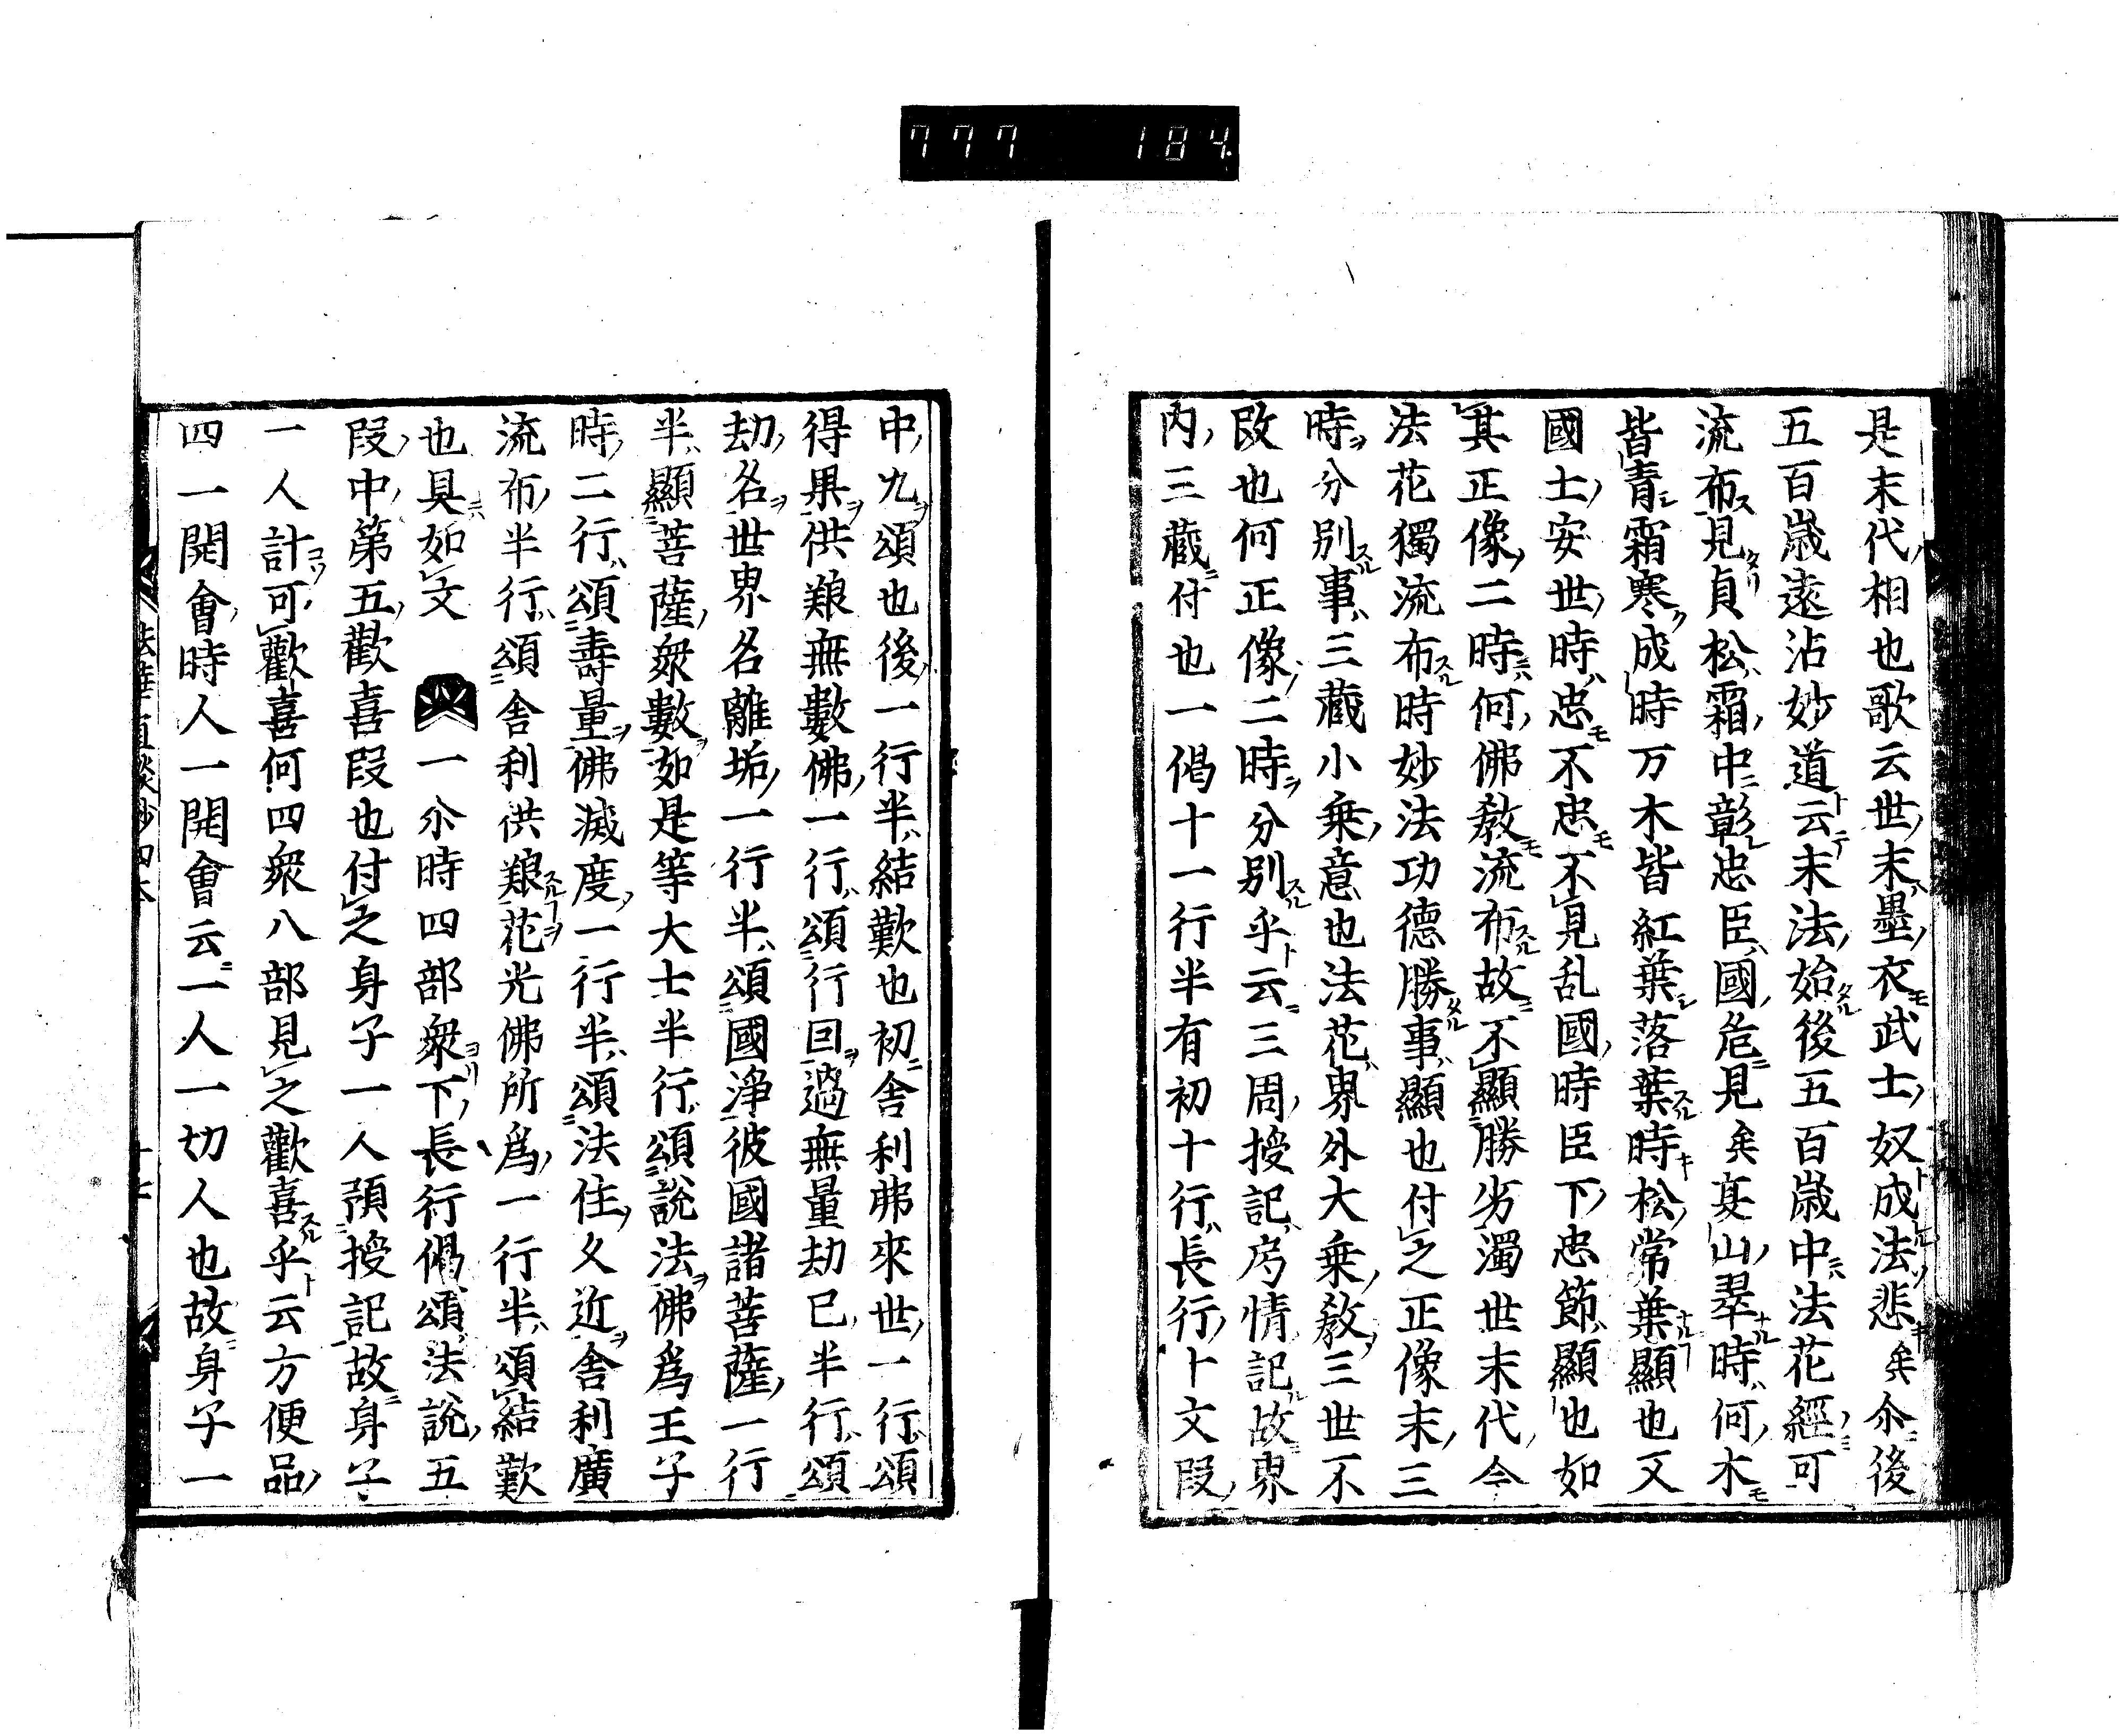 777 184
是末代相也歌云世末墨衣武士奴成法悲矣尒後
五百歳遠沾妙道云末法始後五百歳中法花經可
流布見貞松霜中彰忠臣國危見矣夏山翠時何木
皆青霜寒成時万木皆紅葉落葉時松常葉顯也又
國士安世時忠不忠不見乱國時臣下忠節顯也如
其正像二時何佛教流布故不顯勝劣濁世末代今
法花獨流布時妙法功德勝事顯也付之正像末三
時分別事三藏小乗意也法花界外大乗教三世不
改也何正像二時分別乎云三周授記房情記故界
内三藏付也一偈十一行半有初十行長行卜文叚
中九頌也後一行半結歎也初舎利弗來世一行頌
得果供粮無數佛一行頌行回過無量劫已半行頌
劫名世界名離垢一行半頌國淨彼國諸菩薩一行
半顯菩薩衆數如是等大士半行頌説法佛爲王子
時二行頌壽量佛滅度一行半頌法住久近舎利廣
流布半行頌舎利供粮花光佛所爲一行半頌結歎
也具如文 一尒時四部衆下長行偈頌法説五
叚中第五歡喜叚也付之身子一人預授記故身子
一人計可歡喜何四衆八部見之歡喜乎云方便品
四一開會時人一開會云一人一切人也故身子一